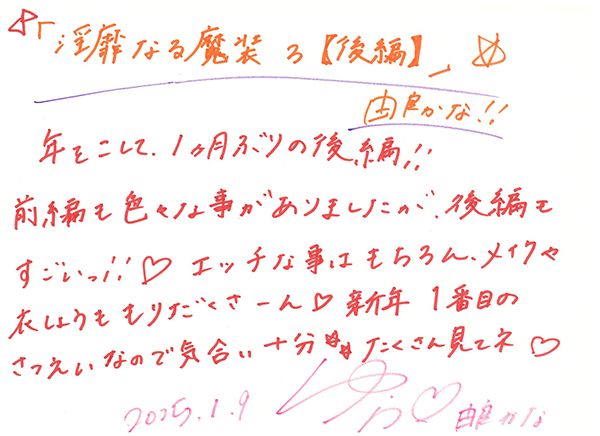 「淫靡なる魔装 3【後編】」
由良かな!!
年をこして、1ヶ月ぶりの後編!!
前編も色々な事がありましたが、後編も
すごいっ!!♡ エッチな事はもちろん、メイクや
衣しょうももりだくさーん♡ 新年 1番目の
さつえいなので気合い十分 たくさん見てネ♡
2025.1.9 ♡ 由良かな